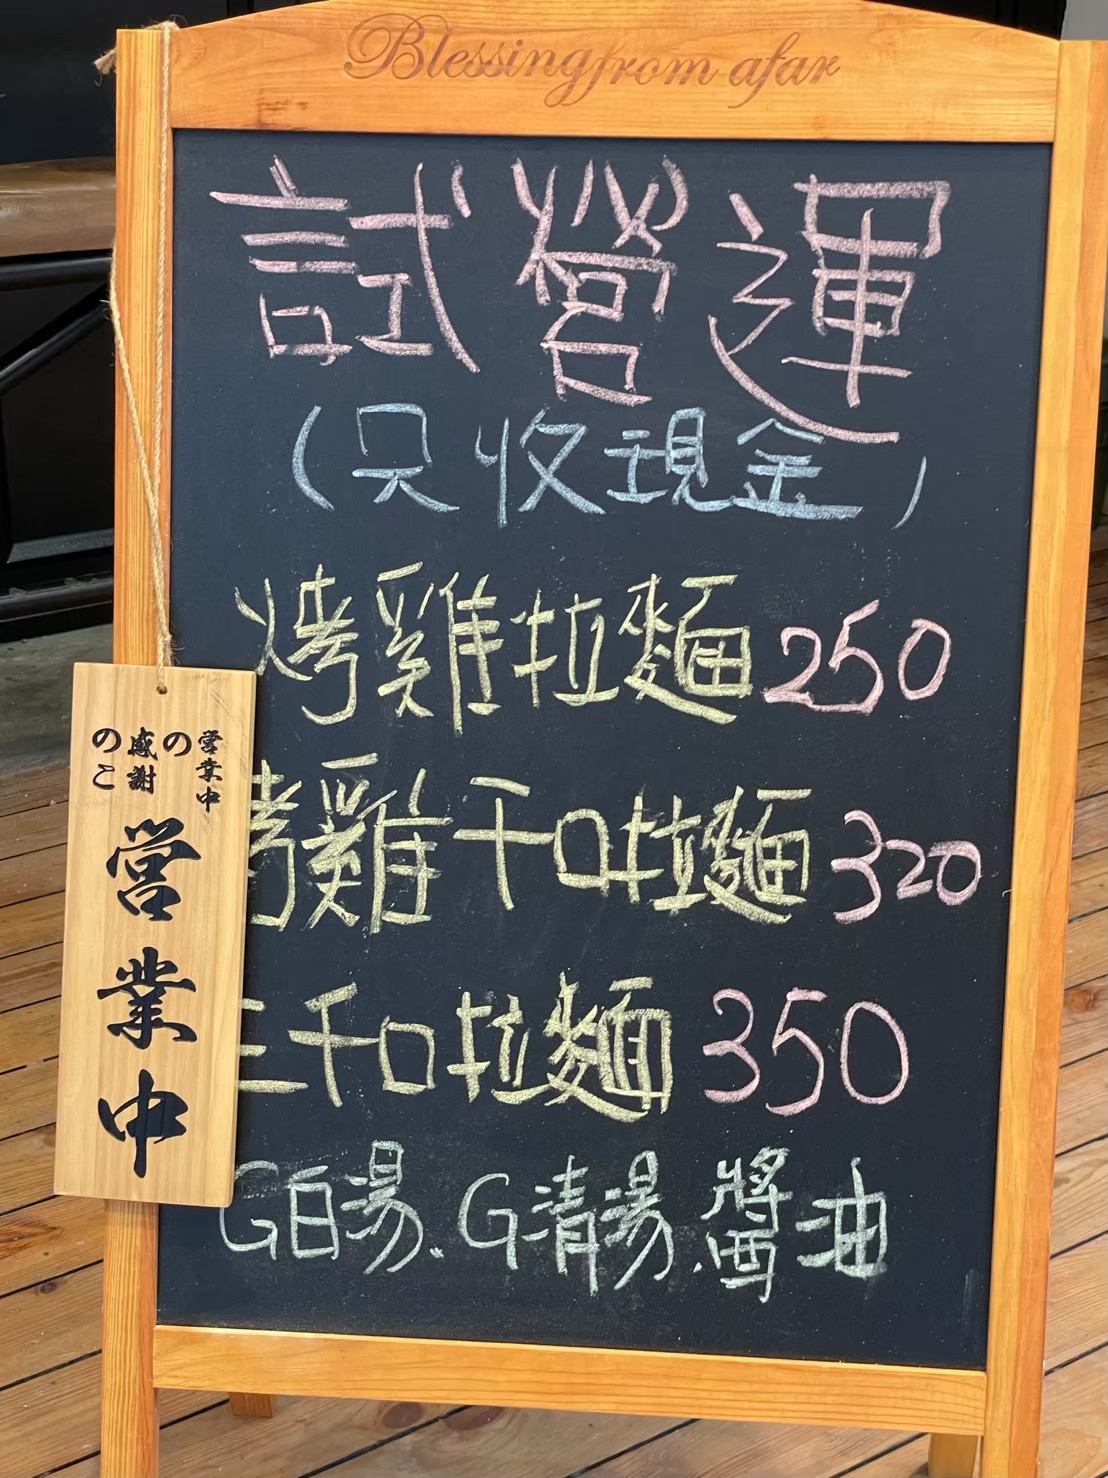 Blessing from afar
試營運
(只收現金)
烤雞拉麵 250
烤雞千口拉麵 320
三千口拉麵 350
G白湯.G清湯.醬油
営業中
の
感謝
のこ
営業中